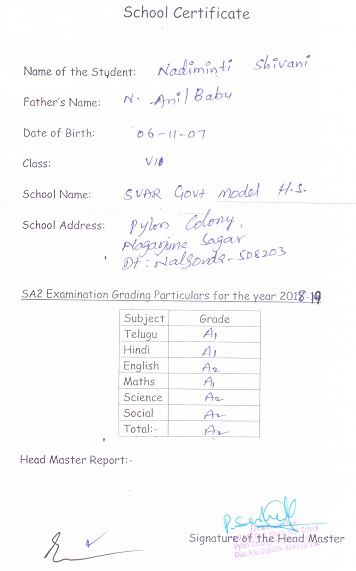 School Certificate
Name of the Student: Nadiminti Shivani
Father's Name: N. Anil Babu
Date of Birth: 06-11-07
Class: VII
School Name: SVAR Govt model H.S.
School Address: Pylon Colony,
Nagarjuna Sagar
Dt: Nalgonda-508203
SA2 Examination Grading Particulars for the year 2018-19
Subject Grade
Telugu A1
Hindi A1
English A2
Maths A1
Science A2
Social A2
Total:- A2
Head Master Report:-
Signature of the Head Master